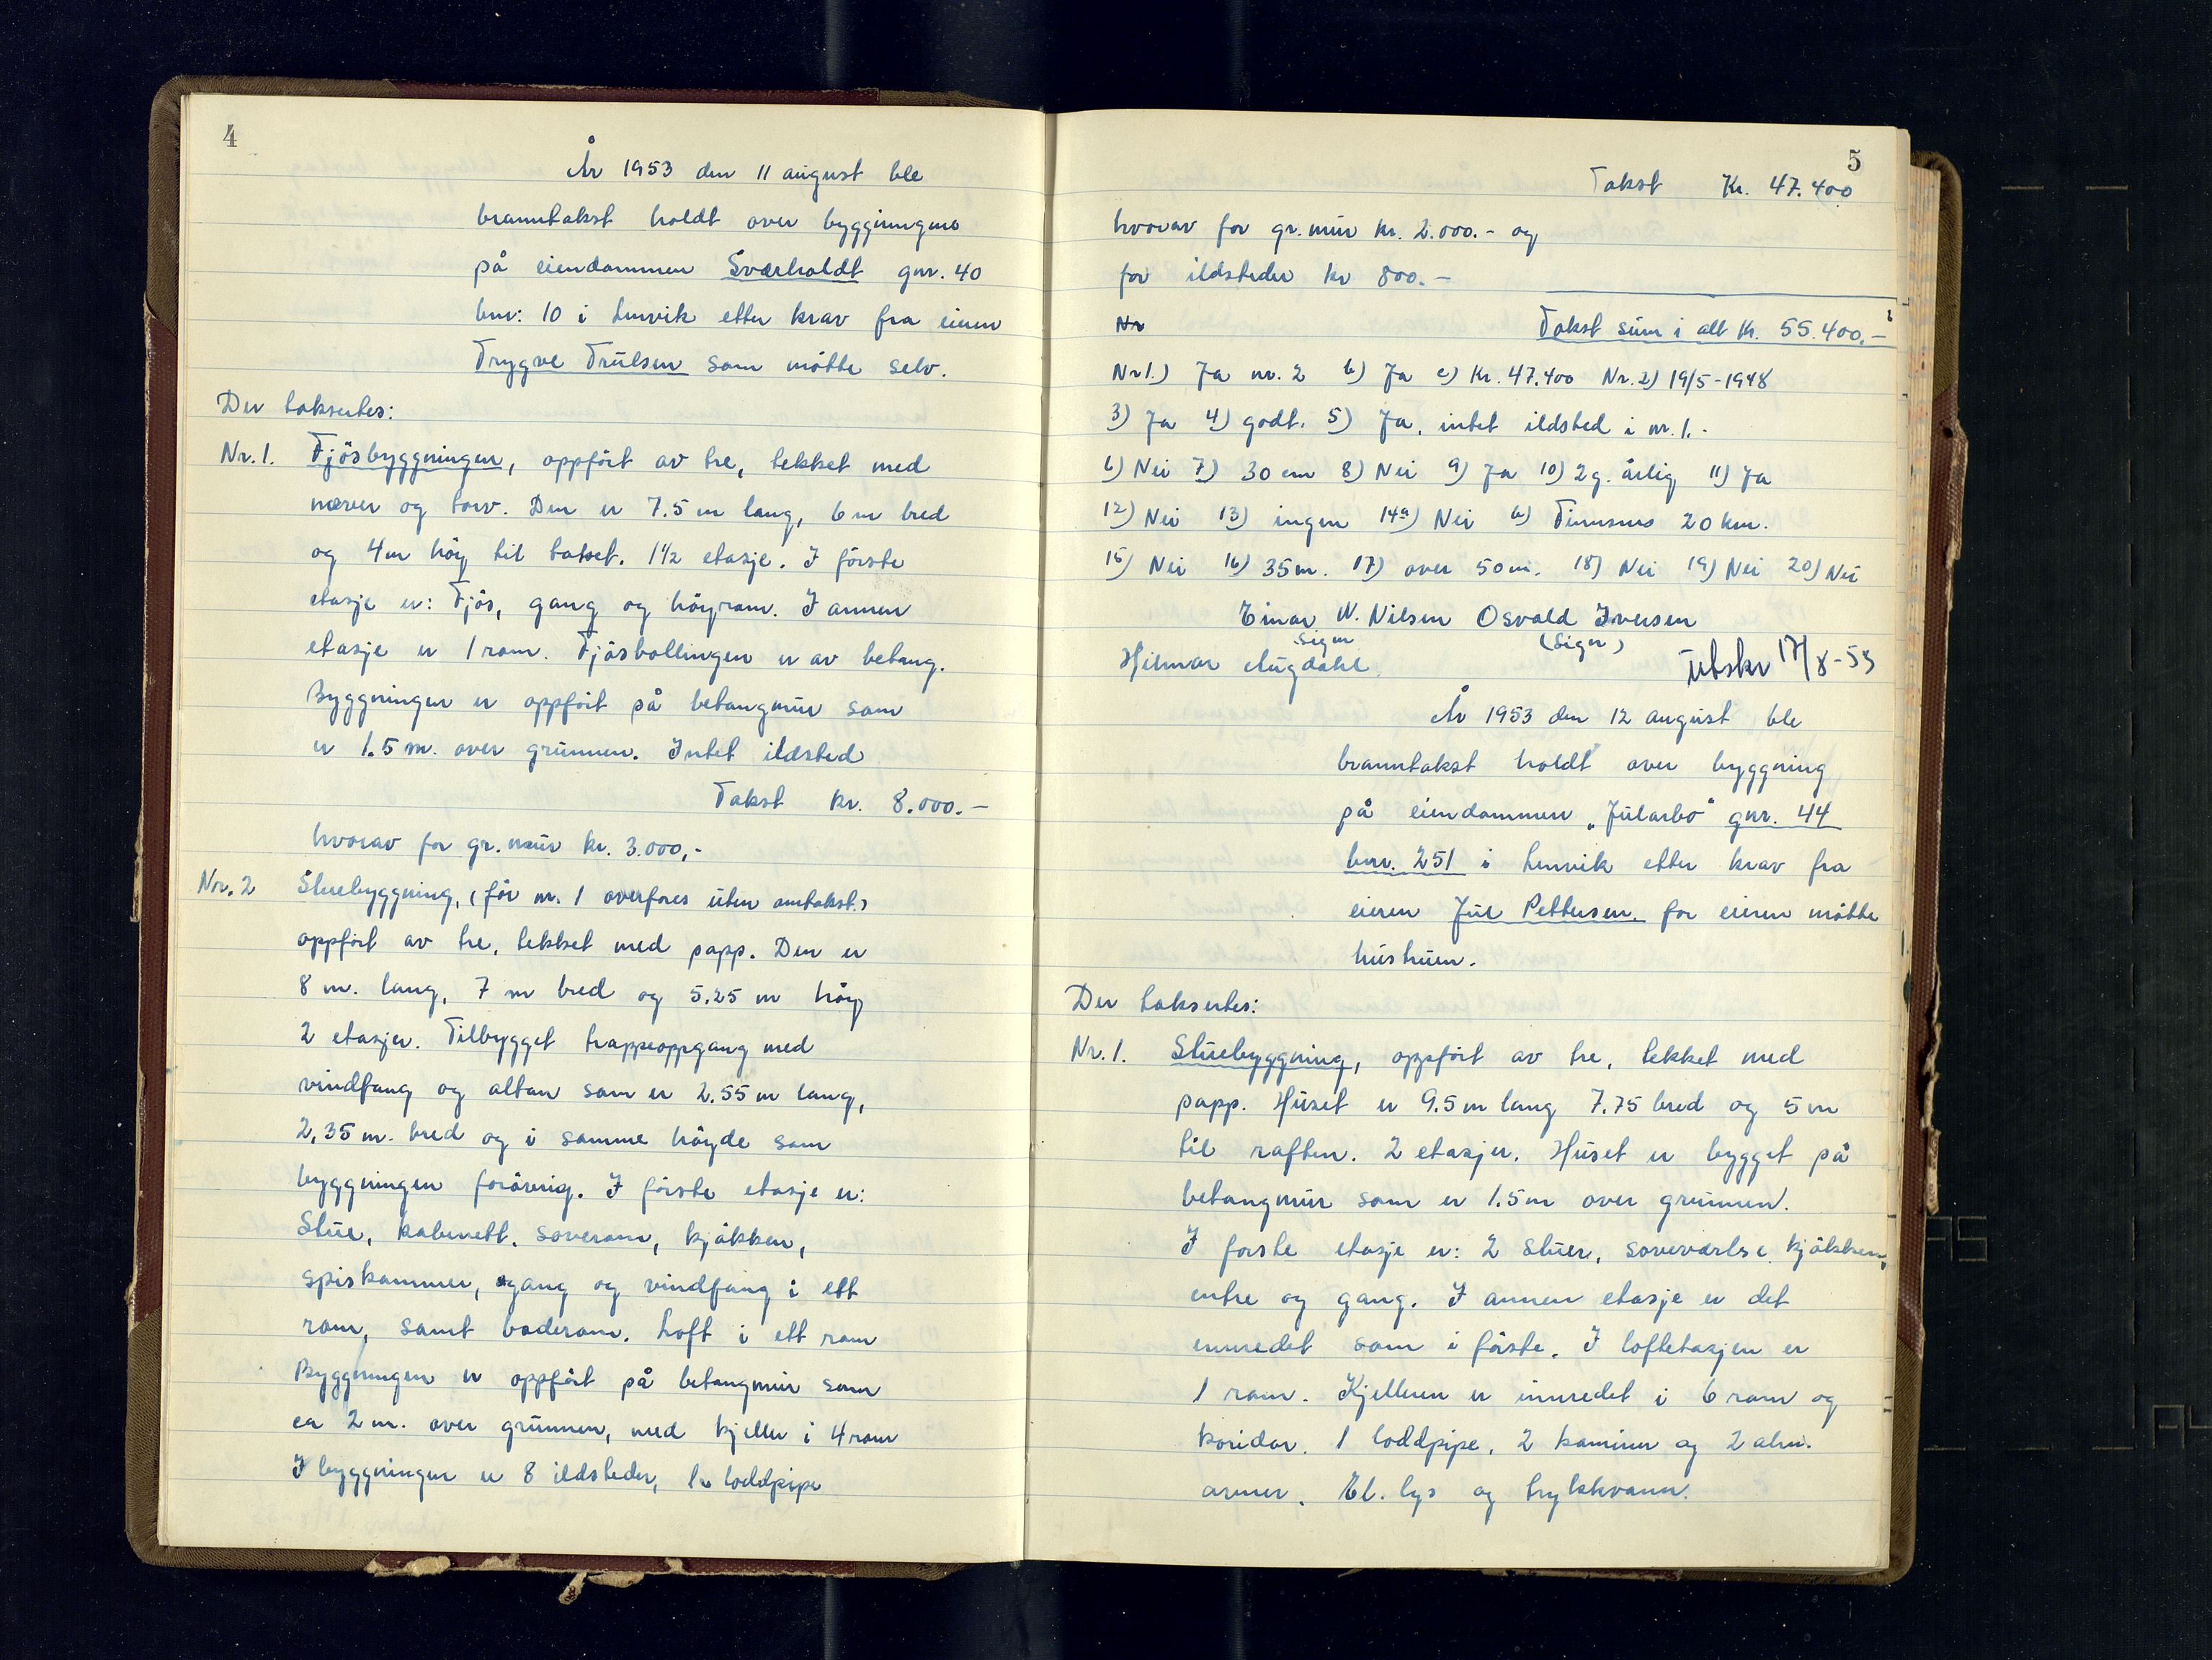 4
År 1953 den 11 august ble
branntakst holdt over byggningene
på eiendommen Sværholdt gnr. 40
bnr: 10 i Lenvik etter krav fra eieren
Trygve Trulsen som møtte selv.
Der taksertes:
Nr. 1. Fjösbyggningen, oppfört av tre, tekket med
never og torv. Den er 7.5 m lang, 6 m bred
og 4 m höy til taket. 1½ etasje. I förste
etasje er: Fjös, gang og höyrom. I annen
etasje er 1 rom. Fjösbollingen er av betong.
Byggningen er oppfört på betongmur som
er 1.5 m. over grunnen. Intet ildsted
Takst kr. 8.000.-
hvorav for gr.mur kr. 3.000,-
Nr. 2 Stuebyggning, (för nr. 1 overföres uten omtakst.)
oppfört av tre, tekket med papp. Den er
8 m. lang, 7 m bred og 5.25 m höy
2 etasjer. Tilbygget trappeoppgang med
vindfang og altan som er 2.55 m lang,
2,35 m. bred og i samme höyde som
byggningen forövrig. I förste etasje er:
Stue, kabinett, soverom, kjökken,
spiskammer, gang og vindfang i ett
rom, samt baderom. Loft i ett rom
Byggningen er oppfört på betongmur som
ca 2 m. over grunnen, med kjeller i 4 rom
I byggningen er 8 ildsteder, loddpipe
5
Takst Kr. 47.400
hvorav for gr.mur kr. 2.000.- og
for ildsteder kr 800.-
Nr Takst sum i alt Kr. 55.400,-
Nr 1.) Ja nr. 2 b) Ja c) Kr. 47.400 Nr. 2) 19/5-1948
3) Ja 4) godt. 5) Ja, intet ildsted i nr. 1.-
6) Nei 7) 30 cm 8) Nei 9) Ja 10) 2 g. årlig 11) Ja
12) Nei 13) ingen 14a) Nei b) Finnsnes 20 km.
15) Nei 16) 35 m. 17) over 50 m. 18) Nei 19) Nei 20) Nei
Einar N. Nilsen Osvald Iversen
sign (Sign)
Hilmar Augdahl. Utskr 17/8-53
År 1953 den 12 august ble
branntakst holdt over byggning
på eiendommen „Jularbo“ gnr. 44
bnr. 251 i Lenvik etter krav fra
eieren Jul Pettersen. for eieren møtte
hustruen.
Der taksertes:
Nr. 1. Stuebyggning, oppfört av tre, tekket med
papp. Huset er 9.5 m lang 7.75 bred og 5 m
til raften. 2 etasjer. Huset er bygget på
betongmur som er 1.5 m over grunnen.
I forste etasje er: 2 stuer, soveværelse, kjökken,
entre og gang. I annen etasje er det
innredet som i förste. I loftetasjen er
1 rom. Kjelleren er innredet i 6 rom og
koridor. 1 loddpipe, 2 kaminer og 2 alm.
ovner. El. lys og trykkvann.